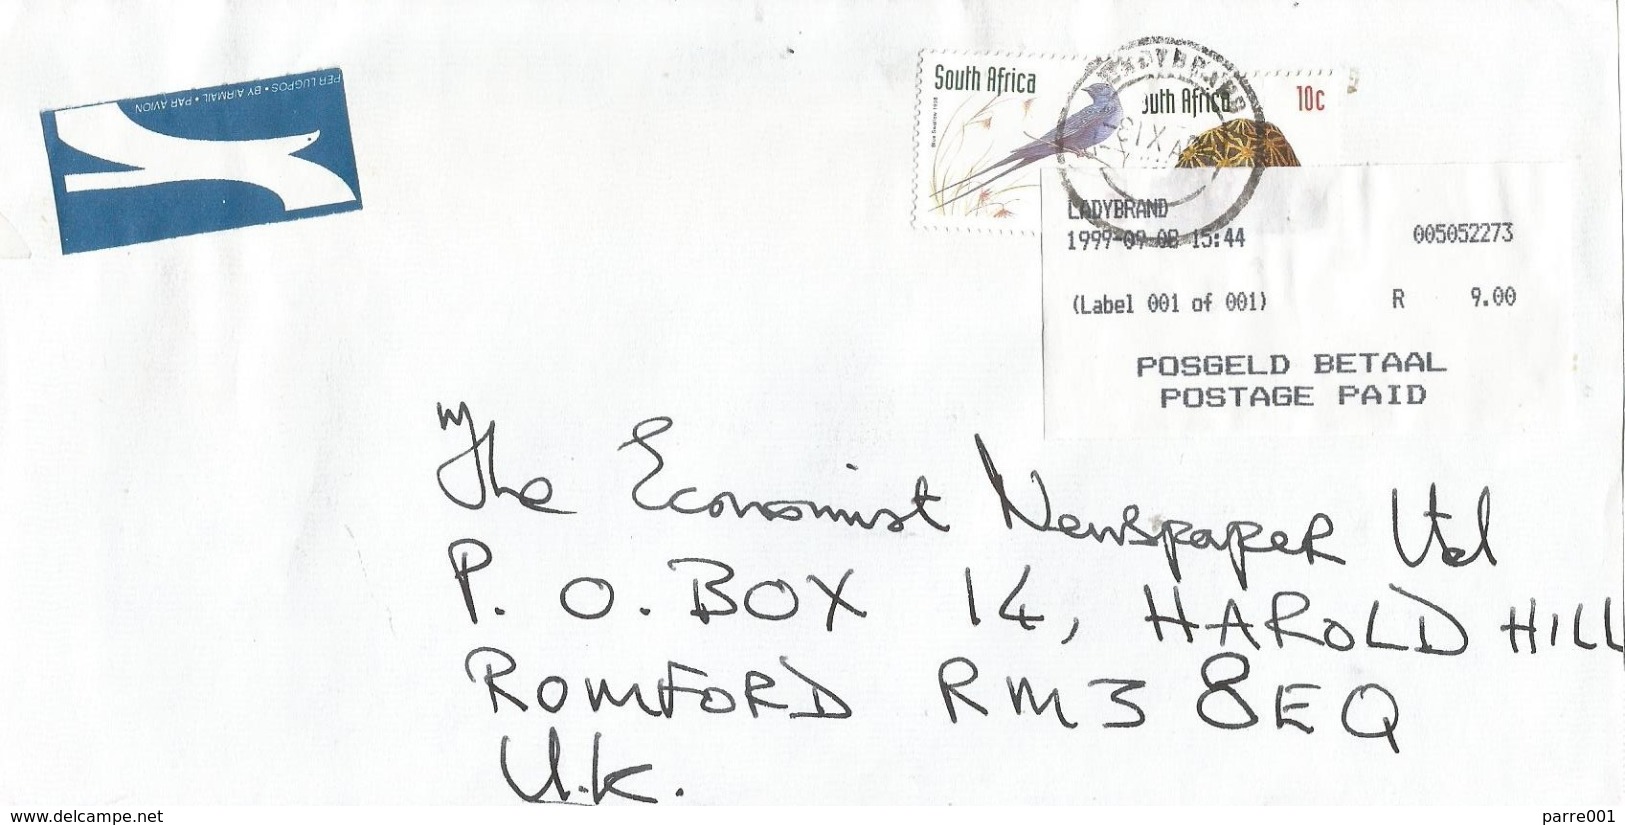 PER LUGPOS • BY AIRMAIL • PAR AVION
South Africa
Blue Swallow 1998
South Africa 10c
LADYBRAND
LADYBRAND
1999-09-08 15:44 005052273
(Label 001 of 001) R 9.00
POSGELD BETAAL
POSTAGE PAID
The Economist Newspaper Ltd
P. O. BOX 14, HAROLD HILL
ROMFORD RM3 8EQ
U.K.
www.delcampe.net parre001